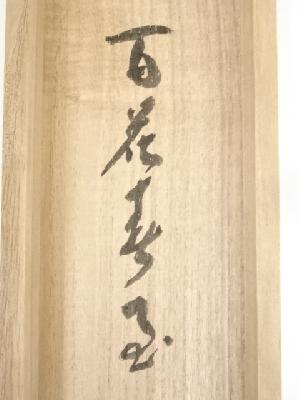 百花春至